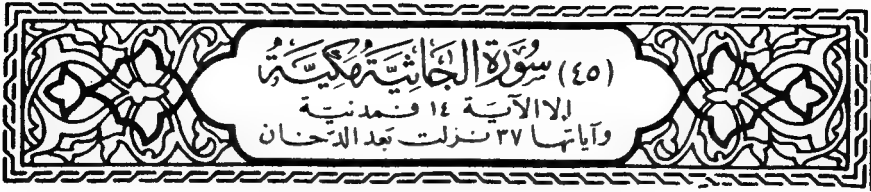 (٤٥) سُورَة الجَاثيَة مَكيَّة
إلا الآيَة ١٤ فمَدنيَة
وآياتهَا ٣٧ نزلت بَعد الدّخَان